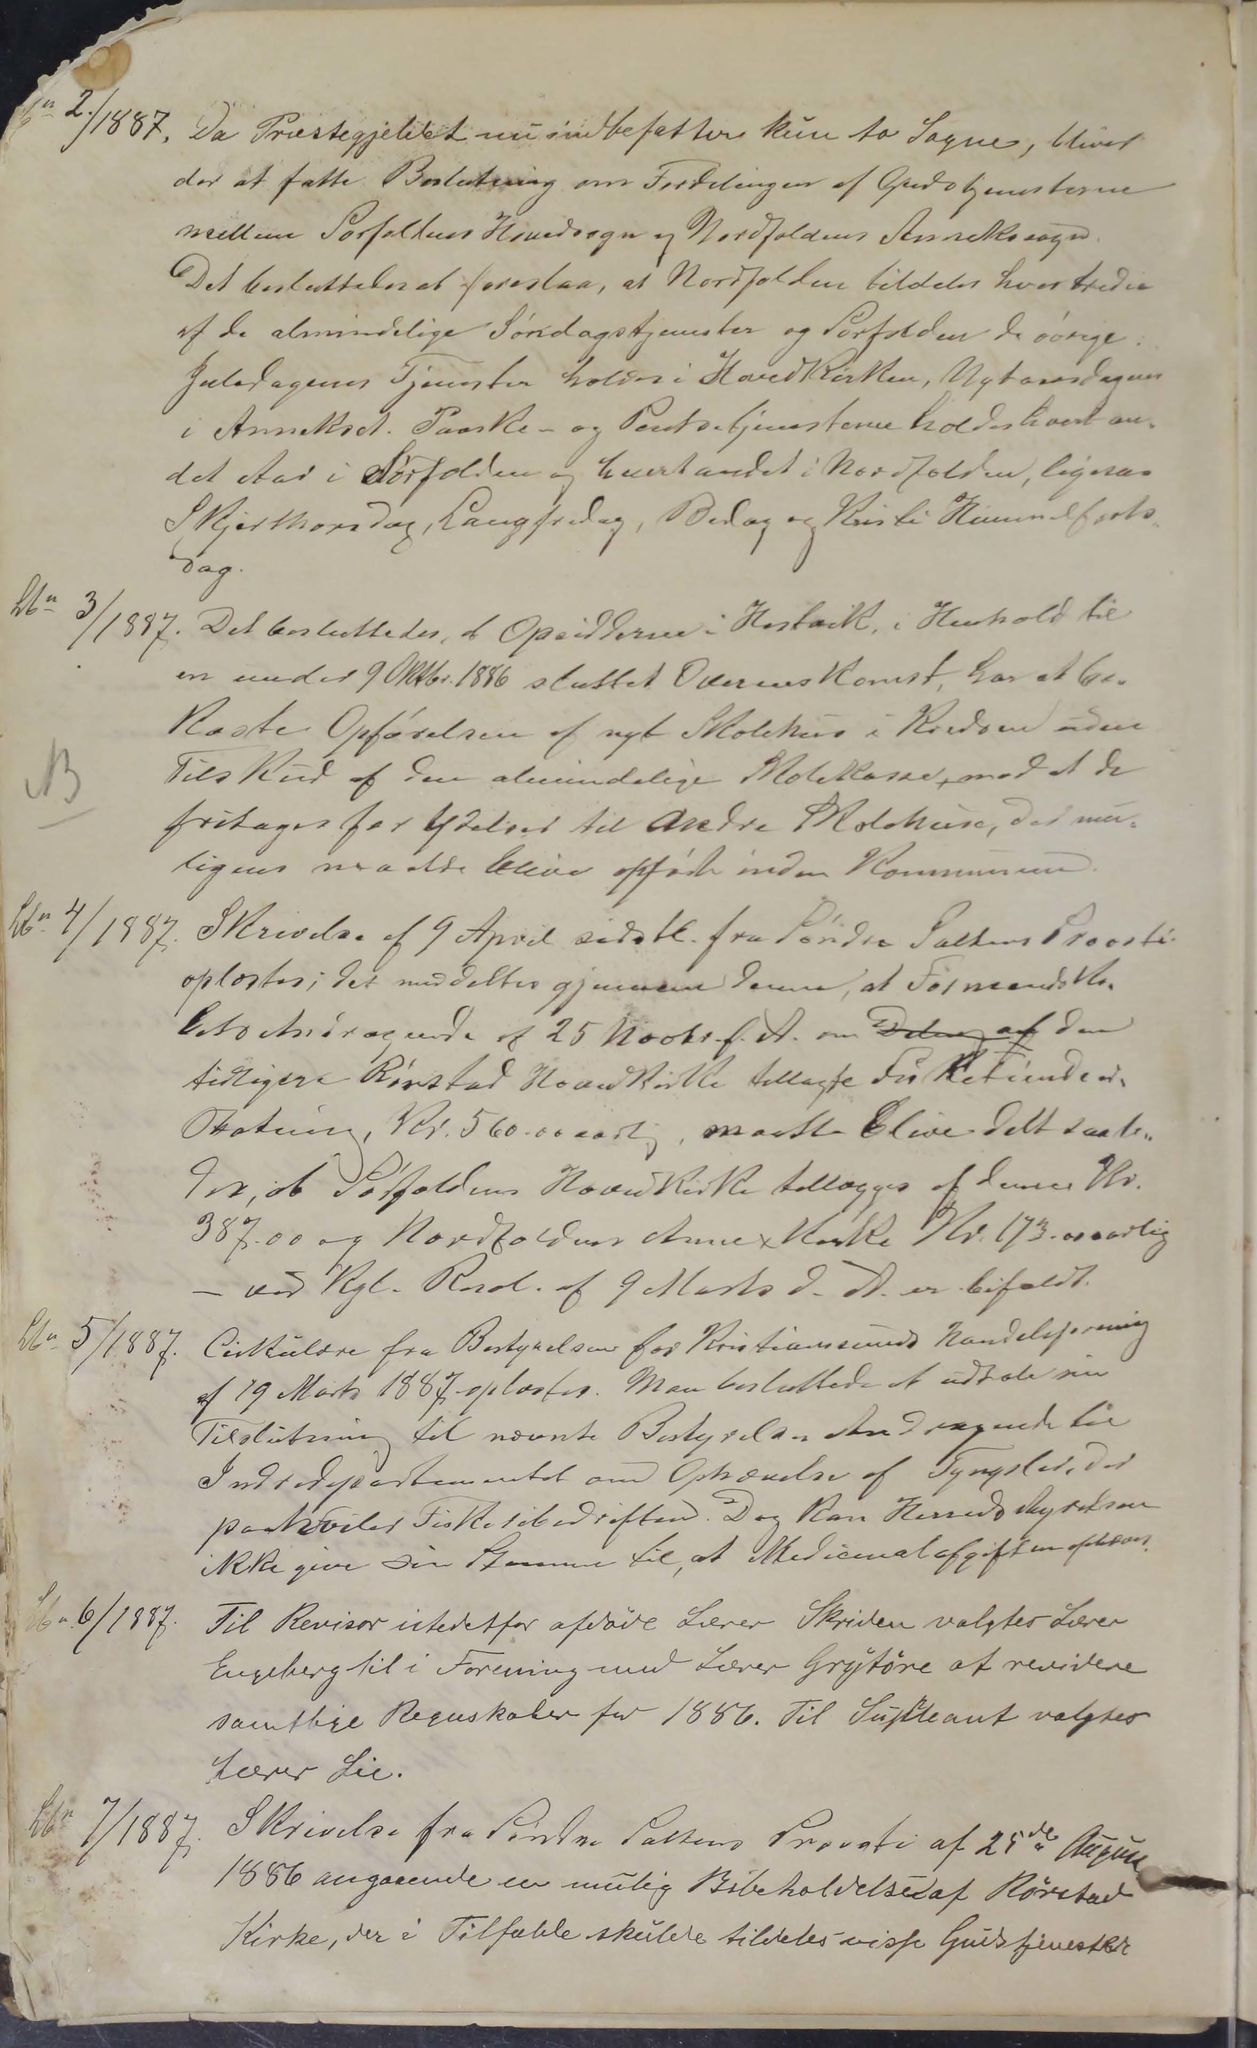 Lbn 2/1887. Da Præstegjeldet nu indbefatter kun to Sogne, bliver
der at fatte Beslutning om Fordelingen af Gudstjenesterne
mellem Sørfoldens Hovedsogn og Nordfoldens Annekssogn.
Det besluttedes at foreslaa, at Nordfolden tildeles hver tredie
af de almindelige Søndagstjenester og Sørfolden de øvrige.
Juledagenes Tjenester holdes i Hovedkirken, Nytaarsdagens
i Annekset. Paaske- og Pintsetjenesterne holdes hvert an-
det Aar i Sørfolden og hvertandet i Nordfolden, ligesaa
Skjærthorsdag, Langfredag, Bedag og Kristi Himmelfarts-
dag.
Lbn 3/1887. Det besluttedes, at Opsidderne i Hestvik, i Henhold til
en under 9 Oktbr. 1886 sluttet Overenskomst, har at be-
koste Opførelsen af nyt Skolehus i Kredsen uden
Tilskud af den almindelige Skolekasse, mod at de
NB
fritages for Ydelser til andre Skolehuse, der mu-
ligens maatte blive opført inden Kommunen.
Lbn 4/1887. Skrivelse af 9 April sidstl. fra Søndre Saltens Provsti
oplæstes; det meddeltes gjennem denne, at Formandska-
bets Andragende af 25 Novbr. f. A. om Deling af den
tidligere Rørstad Hovedkirke tillagte Fisketiendeer-
statning, Kr. 560.00 aarlig, maatte blive delt saale-
des, at Sørfoldens Hovedkirke tillægges af denne Kr.
387.00 og Nordfoldens Annexkirke Kr. 173.00 aarlig
– ved Kgl. Resol. af 9 Marts d. A. er bifaldt.
Lbn 5/1887. Cirkulære fra Bestyrelsen for Kristianssunds Handelsforening
af 19 Marts 1887 oplæstes. Man besluttede at udtale sin
Tilslutning til nævnte Bestyrelses Andragende til
Indredepartementet om Ophævelse af Tyngsler, der
paahviler Fiskeribedriften. Dog kan Herredsstyrelsen
ikke give sin Stemme til, at Medicinalafgiften ophæves.
Lbn 6/1887. Til Revisor istedetfor afdøde Lærer Skriden valgtes Lærer
Engeberg til i Forening med Lærer Grytøre at revidere
samtlige Regnskaber for 1886. Til Supleant valgtes
Lærer Lie.
Lbn 7/1887. Skrivelse fra Søndre Saltens Provsti af 25de August
1886 angaaende en mulig Bibeholdelse af Rørstad
Kirke, der i Tilfælde skulde tildeles visse Gudstjenester